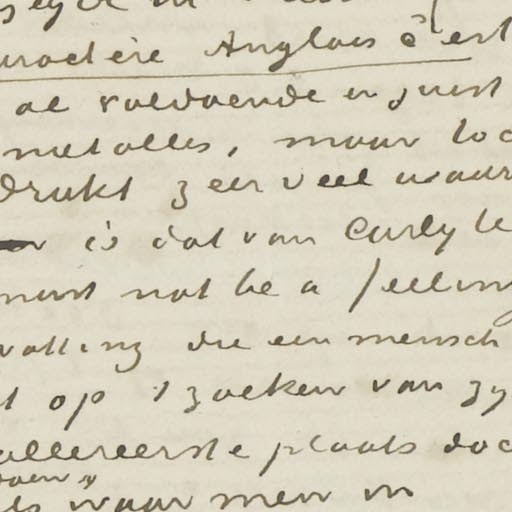 caractère Anglais c'est
al voldoende en juist
met alles, maar toc
drukt zeer veel waar
is dat van Carlyle
must not be a feeling
vatting die een mensch
t op 't zoeken van zy
allereerste plaats doo
als waar men in